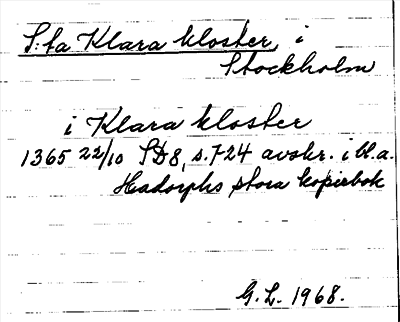 S:ta Klara kloster, i
Stockholm
i Klara kloster
1365 22/10 SD8, s. 724 avskr. i bl.a.
Hadorphs stora kopiebok
G.L. 1968.